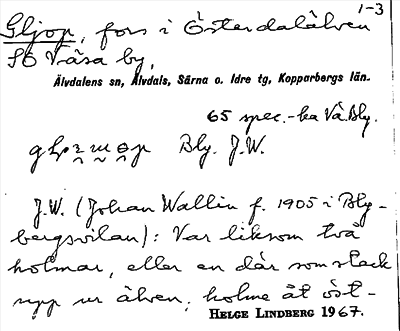 1-3
Gljop, fors i Österdalälven
SÖ Våsa by,
Älvdalens sn, Älvdals, Särna o. Idre tg, Kopparbergs län.
65 spec.-ka Vå.Bly.
Bly. J.W.
J.W. (Johan Wallin f. 1905 i Bly-
bergsvilan): Var liksom två
holmar, eller en där som stack
upp ur älven; holme åt öst-
HELGE LINDBERG 1967.